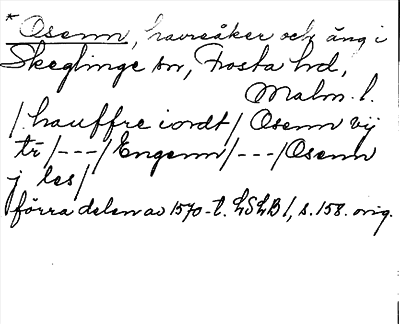 * Osenn, havreåker och äng i
Skeglinge sn, Frosta hd,
Malm. l.
/hauffre iordt/ Osenn vij
tr /---/ Engenn /---/ Osenn
j les/
förra delen av 1570-t. LSLB 1, s. 158. orig.